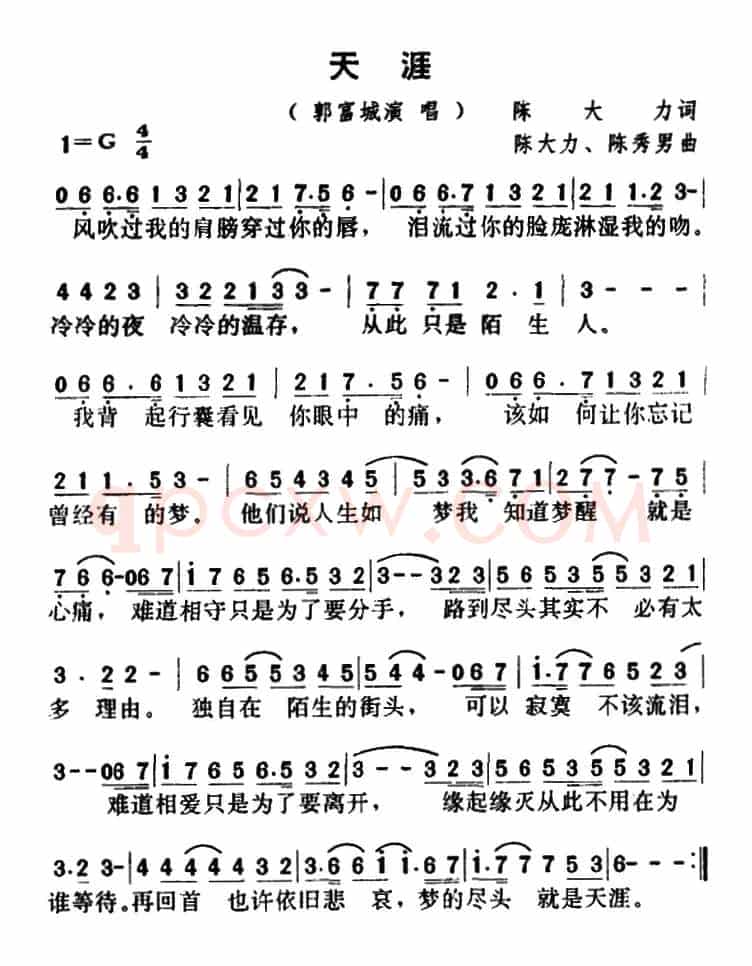 天 涯
（郭富城演 唱） 陈 大 力词
1=G 4/4 陈大力、陈秀男曲
0 6 6.6 1 3 2 1 | 2 1 7.5 6 - | 0 6 6.7 1 3 2 1 | 2 1 1.2 3 - |
风吹过我的肩膀穿过你的唇， 泪流过你的脸庞淋湿我的吻。
4 4 2 3 | 3 2 2 2 1 3 3 - | 7 7 7 1 2 . 1 | 3 - - - |
冷冷的夜 冷冷的温存， 从此 只是 陌 生 人。
0 6 6 . 6 1 3 2 1 | 2 1 7 . 5 6 - | 0 6 6 . 7 1 3 2 1 |
我背 起行囊看见 你眼中 的痛， 该如 何让你忘记
2 1 1 . 5 3 - | 6 5 4 3 4 5 | 5 3 3.6 7 1 | 2 7 7 - 7 5 |
曾经有 的梦。 他们说人生如 梦我 知道梦醒 就是
7 6 6 - 0 6 7 | i 7 6 5 6.5 3 2 | 3 - - 3 2 3 | 5 6 5 3 5 5 3 2 1 |
心痛， 难道相守只是为了要分手， 路到尽头其实不 必有太
3 . 2 2 - | 6 6 5 5 3 4 5 | 5 4 4 - 0 6 7 | i.7 7 6 5 5 3 |
多 理由。 独自在 陌生的街头， 可以 寂寞 不该流泪，
3 - - 0 6 7 | i 7 6 5 6.5 3 2 | 3 - - 3 2 3 | 5 6 5 3 5 5 3 2 1 |
难道相爱只是为了要离开， 缘起缘灭从此不用在为
3.2 3 - | 4 4 4 4 4 3 2 | 3.6 6 i i.6 7 | i.7 5 5 5 3 | 6 - - - :||
谁等待。再回首 也许依旧悲 哀，梦的尽头 就是天涯。
qpcxw.COM